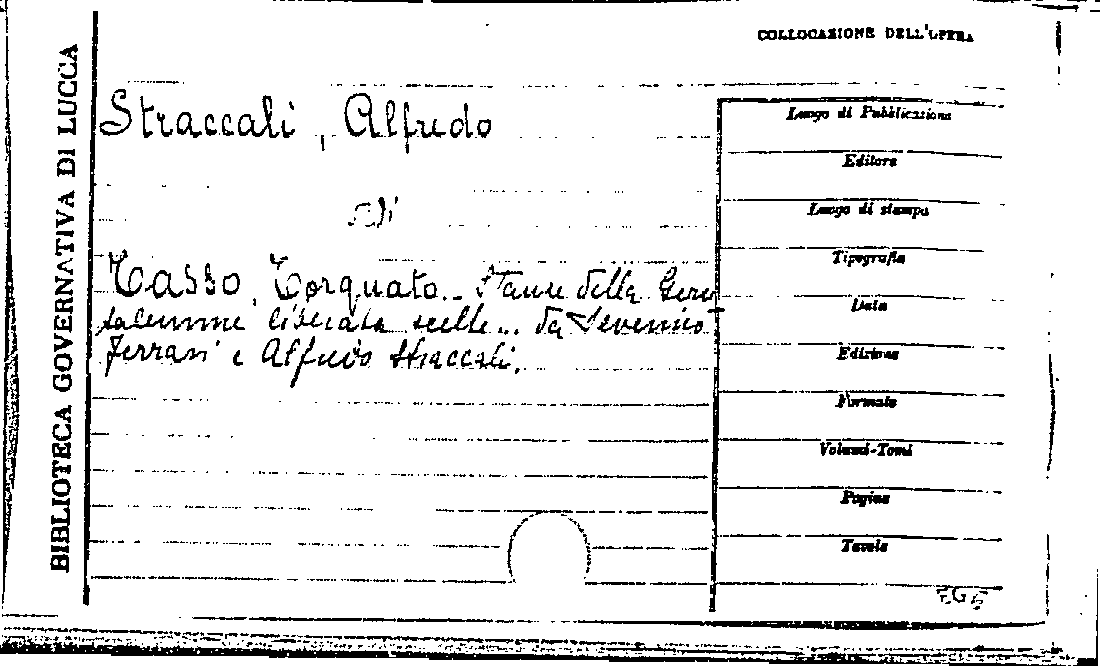 BIBLIOTECA GOVERNATIVA DI LUCCA
COLLOCAZIONE DELL'OPERA
Straccali, Alfredo
Tasso, Torquato.. Stanze della Geru
salemme liberata scelte... da Severino
Ferrari e Alfredo Straccali.
Luogo di Pubblicazione
Editore
Luogo di stampa
Tipografia
Data
Edizione
Formato
Volumi-Tomi
Pagine
Tavole